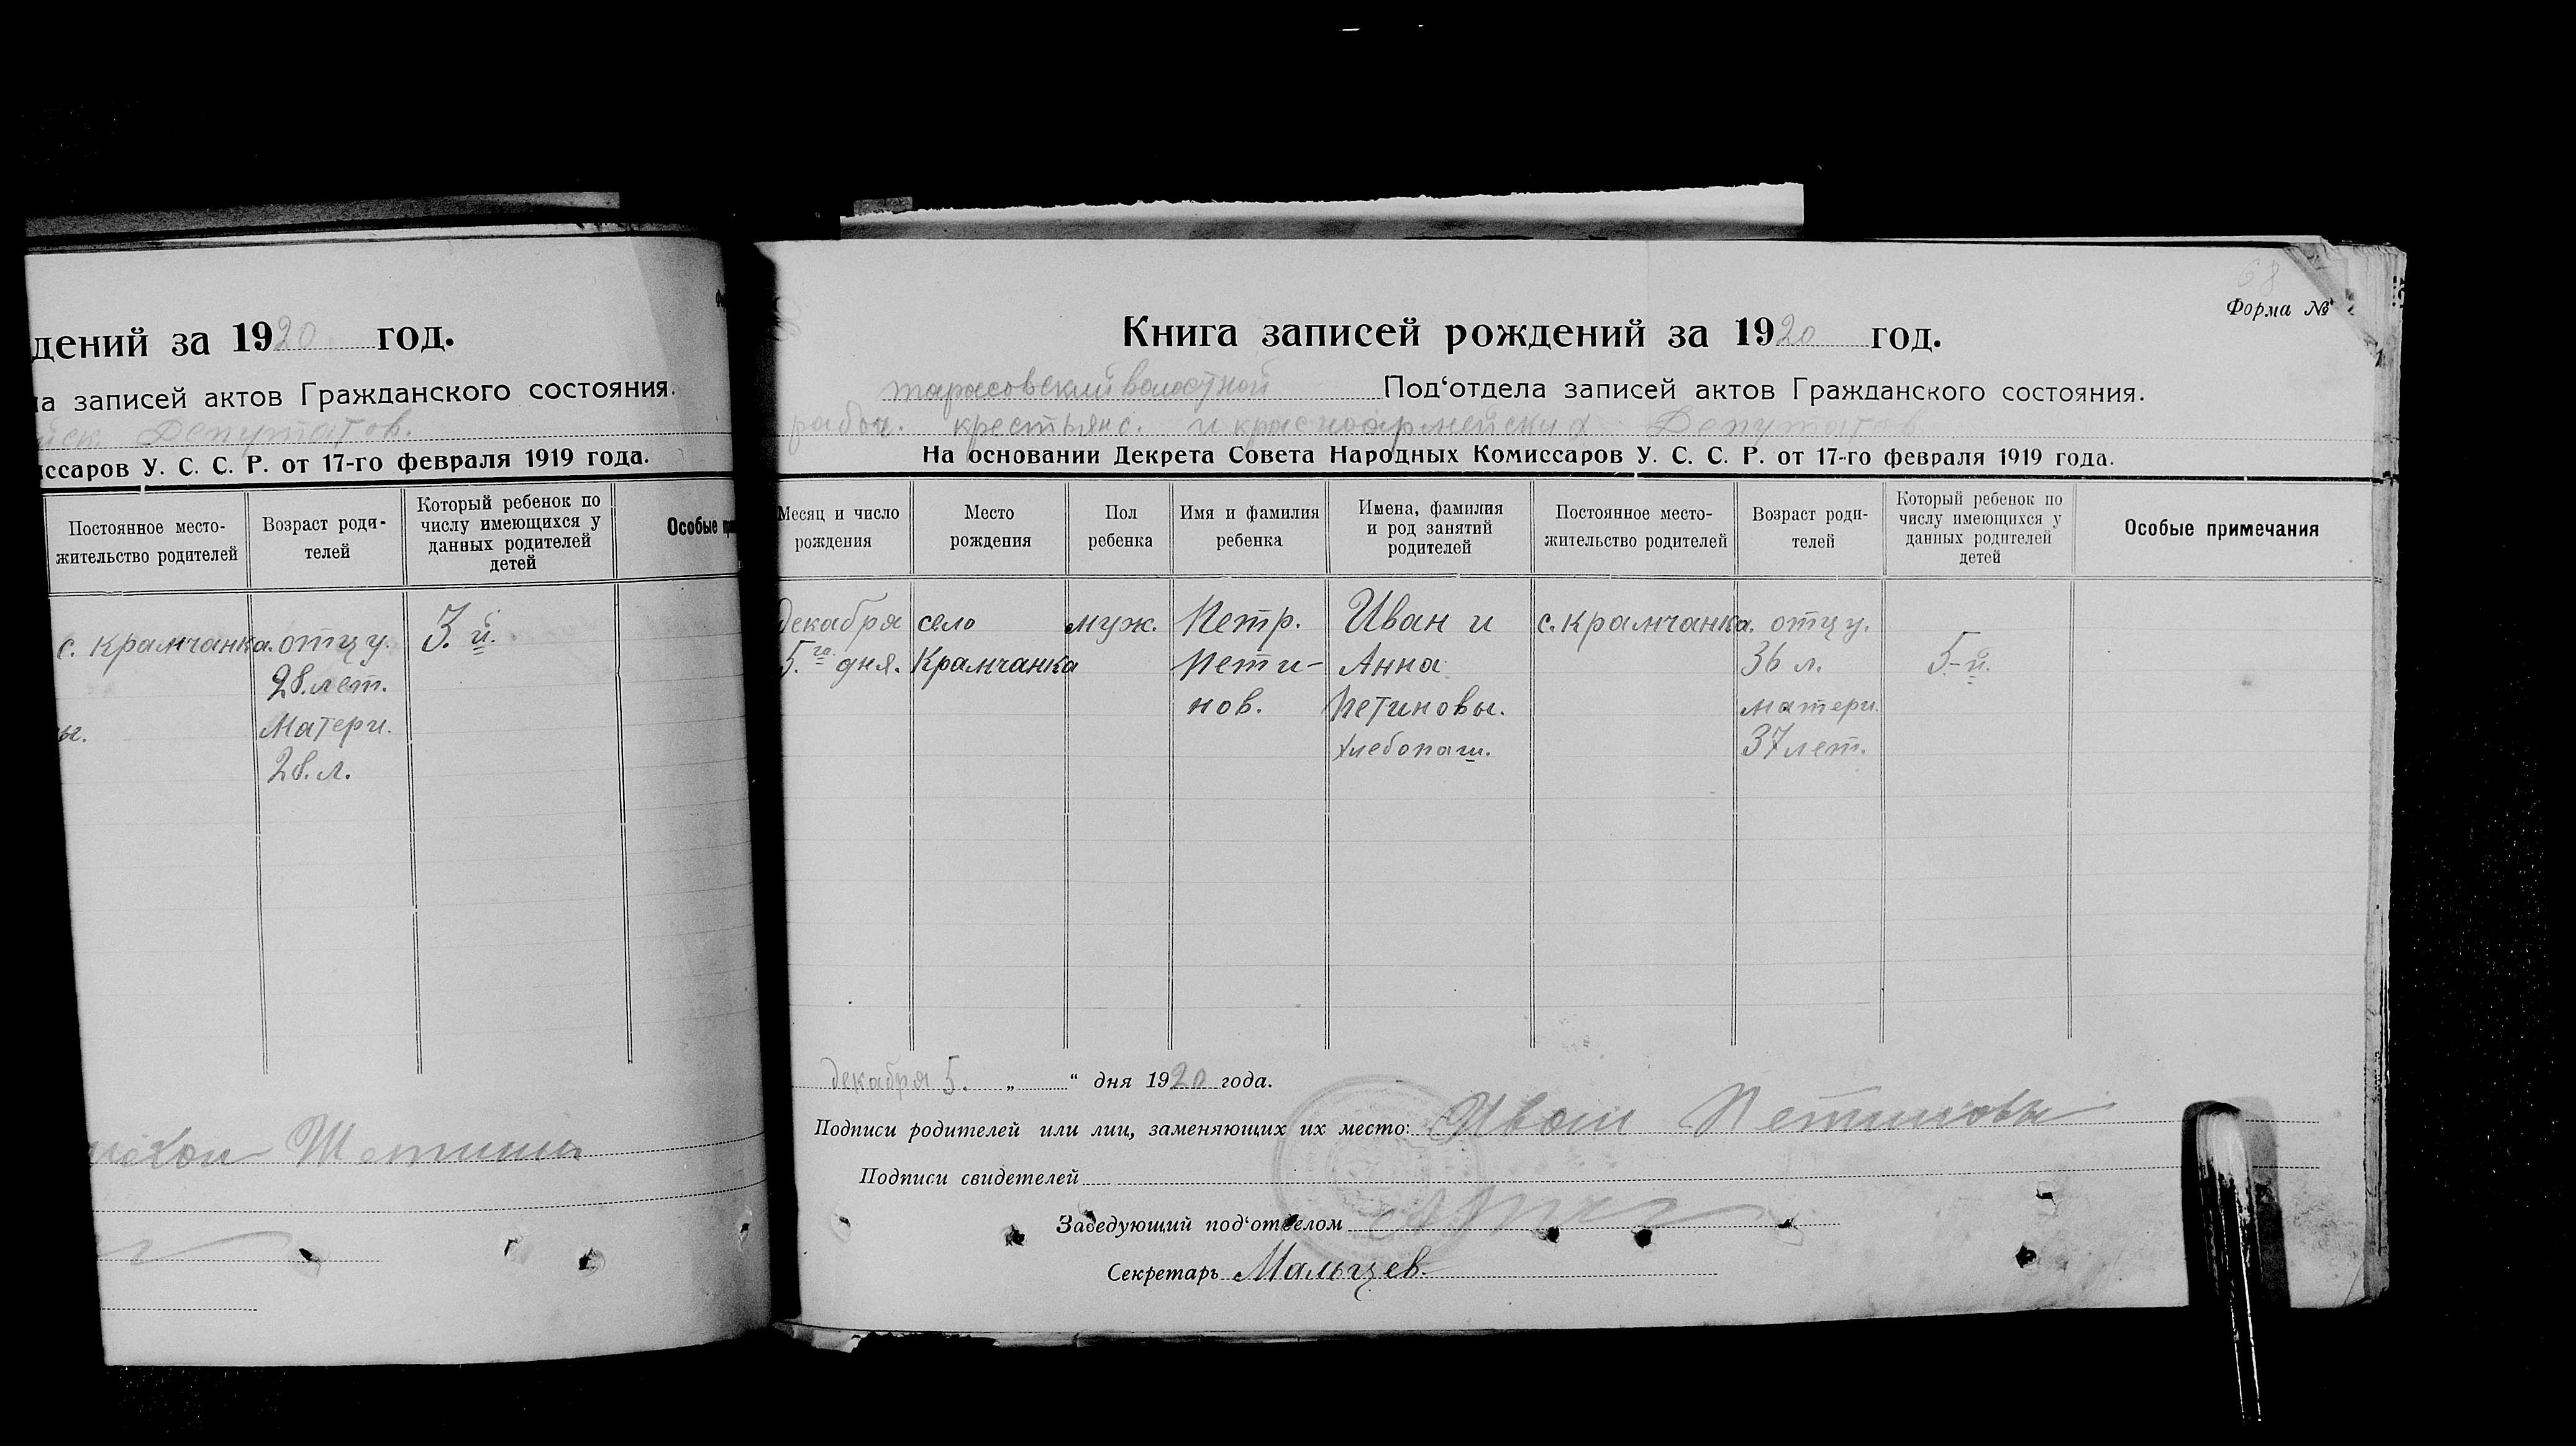 дений за 1920 год.
а записей актов Гражданского состояния.
Депутатов.
иссаров У. С. С. Р. от 17-го февраля 1919 года.
Постоянное место-
жительство родителей
Возраст роди-
телей
Который ребенок по
числу имеющихся у
данных родителей
детей
Особые
с. Крамчанка.
ы.
отцу.
28. лет.
Матери.
28. л.
3. й.
68
Форма №
Книга записей рождений за 1920 год.
тарасовский волостной Под‘отдела записей актов Гражданского состояния.
рабоч. крестьянс. и красноармейских Депутатов
На основании Декрета Совета Народных Комиссаров У. С. С. Р. от 17-го февраля 1919 года.
Месяц и число
рождения
Место
рождения
Пол
ребенка
Имя и фамилия
ребенка
Имена, фамилия
и род занятий
родителей
Постоянное место-
жительство родителей
Возраст роди-
телей
Который ребенок по
числу имеющихся у
данных родителей
детей
Особые примечания
декабря
5.го дня.
село
Крамчанка
муж.
Петр.
Пети-
нов.
Иван и
Анна
Петиновы.
хлебопаш.
с. Крамчанка.
отцу.
36 л.
матери.
37 лет.
5-й.
декабря 5. „ “ дня 1920 года.
Подписи родителей или лиц, заменяющих их место: Иван Петиновы
Подписи свидетелей
Заведующий под‘отделом
Секретарь Мальцев.